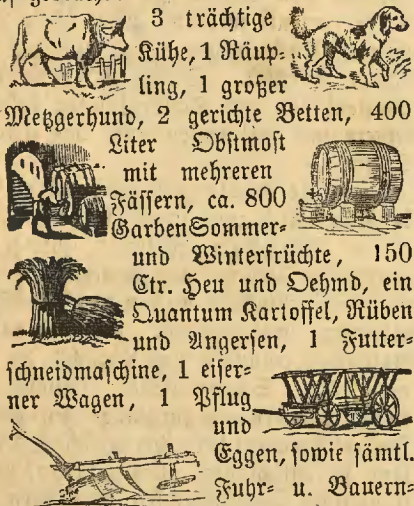 3 trächtige
Kühe, 1 Räup-
ling, 1 großer
Metzgerhund, 2 gerichte Betten, 400
Liter Obstmost
mit mehreren
Fässern, ca. 800
GarbenSommer-
und Winterfrüchte, 150
Ctr. Heu und Oehmd, ein
Quantum Kartoffel, Rüben
und Angersen, 1 Futter-
schneidmaschine, 1 eiser-
ner Wagen, 1 Pflug
und
Eggen, sowie sämtl.
Fuhr- u. Bauern-